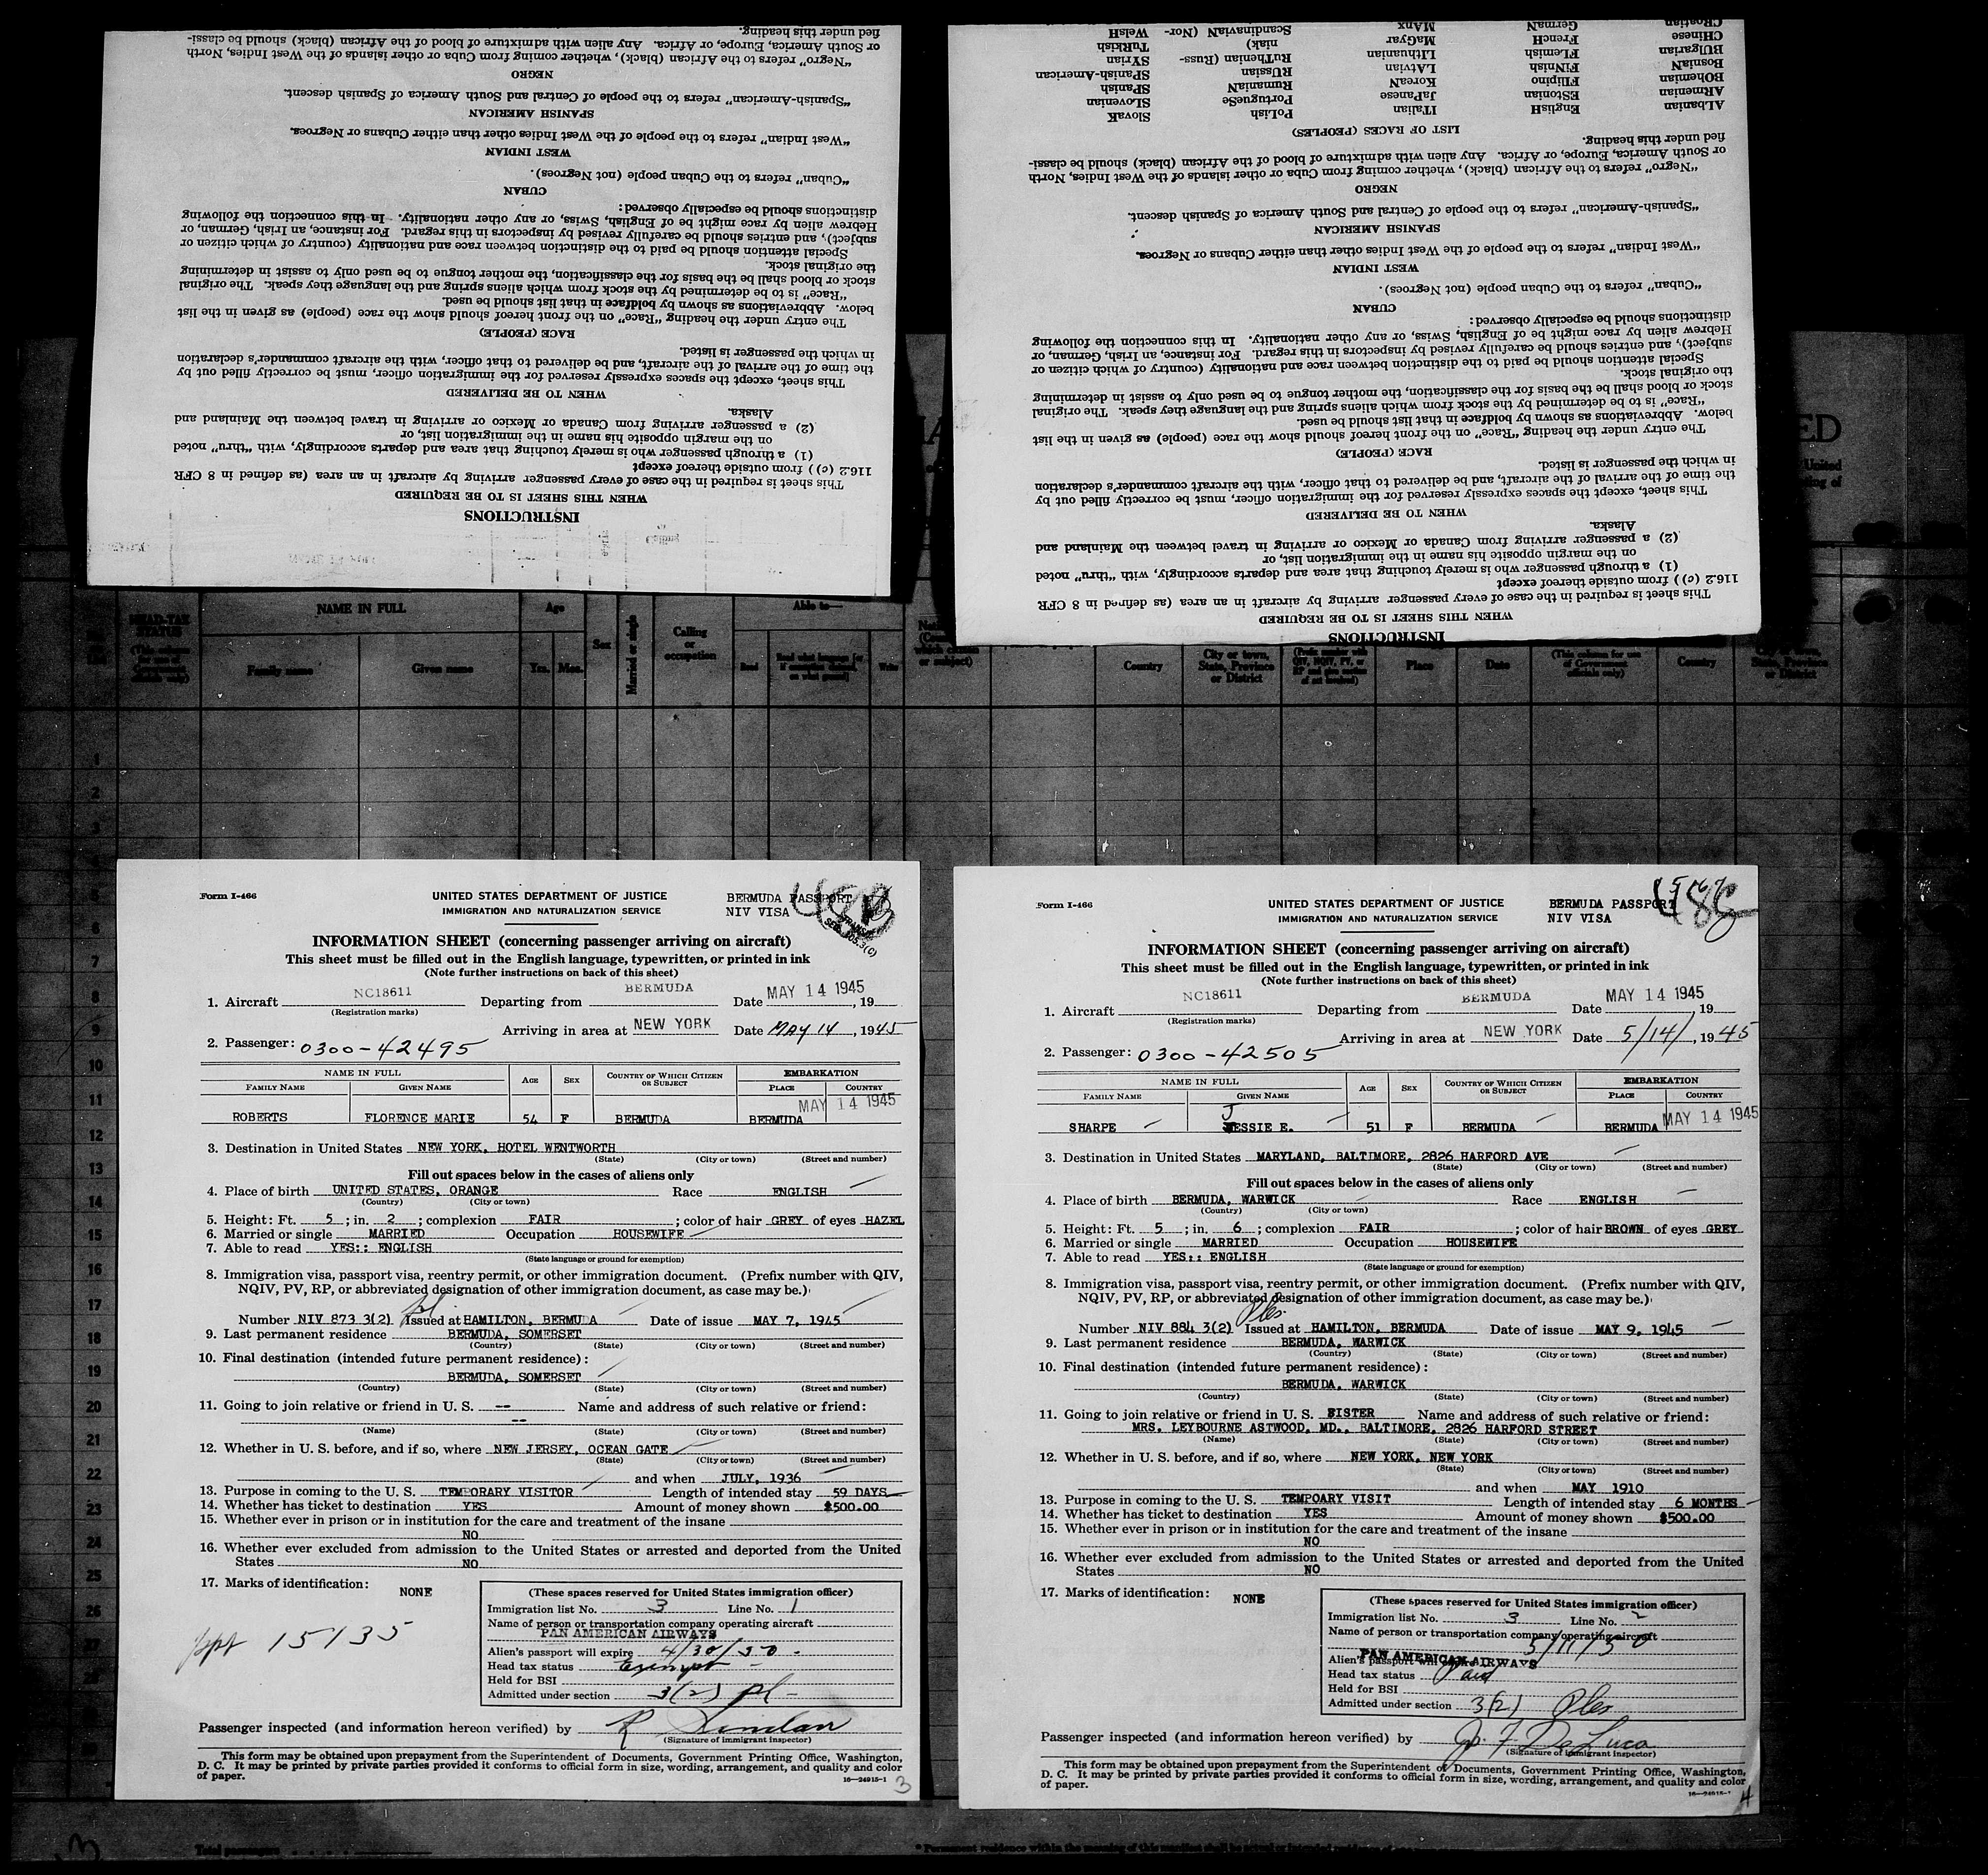 INSTRUCTIONS
WHEN THIS SHEET IS TO BE REQUIRED
This sheet is required in the case of every passenger arriving by aircraft in an area (as defined in 8 CFR
116.2 (c)) from outside thereof except
(1) a through passenger who is merely touching that area and departs accordingly, with "thru" noted
on the margin opposite his name in the immigration list, or
(2) a passenger arriving from Canada or Mexico or arriving in travel between the Mainland and
Alaska.
WHEN TO BE DELIVERED
This sheet, except the spaces expressly reserved for the immigration officer, must be correctly filled out by
the time of the arrival of the aircraft, and be delivered to that officer, with the aircraft commander's declaration
in which the passenger is listed.
RACE (PEOPLE)
The entry under the heading "Race" on the front hereof should show the race (people) as given in the list
below. Abbreviations as shown by boldface in that list should be used.
"Race" is to be determined by the stock from which aliens spring and the language they speak. The original
stock or blood shall be the basis for the classification, the mother tongue to be used only to assist in determining
the original stock.
Special attention should be paid to the distinction between race and nationality (country of which citizen or
subject), and entries should be carefully revised by inspectors in this regard. For instance, an Irish, German, or
Hebrew alien by race might be of English, Swiss, or any other nationality. In this connection the following
distinctions should be especially observed:
CUBAN
"Cuban" refers to the Cuban people (not Negroes).
WEST INDIAN
"West Indian" refers to the people of the West Indies other than either Cubans or Negroes.
SPANISH AMERICAN
"Spanish-American" refers to the people of Central and South America of Spanish descent.
NEGRO
"Negro" refers to the African (black), whether coming from Cuba or other islands of the West Indies, North
or South America, Europe, or Africa. Any alien with admixture of blood of the African (black) should be classi-
fied under this heading.
INSTRUCTIONS
WHEN THIS SHEET IS TO BE REQUIRED
This sheet is required in the case of every passenger arriving by aircraft in an area (as defined in 8 CFR
116.2 (c)) from outside thereof except
(1) a through passenger who is merely touching that area and departs accordingly, with "thru" noted
on the margin opposite his name in the immigration list, or
(2) a passenger arriving from Canada or Mexico or arriving in travel between the Mainland and
Alaska.
WHEN TO BE DELIVERED
This sheet, except the spaces expressly reserved for the immigration officer, must be correctly filled out by
the time of the arrival of the aircraft, and be delivered to that officer, with the aircraft commander's declaration
in which the passenger is listed.
RACE (PEOPLE)
The entry under the heading "Race" on the front hereof should show the race (people) as given in the list
below. Abbreviations as shown by boldface in that list should be used.
"Race" is to be determined by the stock from which aliens spring and the language they speak. The original
stock or blood shall be the basis for the classification, the mother tongue to be used only to assist in determining
the original stock.
Special attention should be paid to the distinction between race and nationality (country of which citizen or
subject), and entries should be carefully revised by inspectors in this regard. For instance, an Irish, German, or
Hebrew alien by race might be of English, Swiss, or any other nationality. In this connection the following
distinctions should be especially observed:
CUBAN
"Cuban" refers to the Cuban people (not Negroes).
WEST INDIAN
"West Indian" refers to the people of the West Indies other than either Cubans or Negroes.
SPANISH AMERICAN
"Spanish-American" refers to the people of Central and South America of Spanish descent.
NEGRO
"Negro" refers to the African (black), whether coming from Cuba or other islands of the West Indies, North
or South America, Europe, or Africa. Any alien with admixture of blood of the African (black) should be classi-
fied under this heading.
LIST OF RACES (PEOPLES)
ALbanian EnglisH ITalian PoLish SlovaK
ARmenian EStonian JaPanese PortugueSe SLOvenian
BOhemian FIlipino KoreaN RumaniaN SPanish
BosniaN FINnish LAtvian RUssian SPanish-American
BUlgarian FLemish LIthuanian RuTHenian (Russ- SYrian
CHinese FrencH MaGyar niak) TuRkish
CRoatian GermaN MAnx ScandinaviaN (Nor- WelsH
NAME IN FULL Age Sex Married or single Calling or occupation Able to—
Family name Given name Yrs. Mos. Read Read what language Write
Country City or town, State, Province or District Place Date Country
Form I-466 UNITED STATES DEPARTMENT OF JUSTICE BERMUDA PASSPORT
IMMIGRATION AND NATURALIZATION SERVICE NIV VISA
INFORMATION SHEET (concerning passenger arriving on aircraft)
This sheet must be filled out in the English language, typewritten, or printed in ink
(Note further instructions on back of this sheet)
1. Aircraft NC18611 Departing from BERMUDA Date MAY 14 1945, 19
(Registration marks)
Arriving in area at NEW YORK Date MAY 14, 1945
2. Passenger: 0300-42495
NAME IN FULL AGE SEX COUNTRY OF WHICH CITIZEN OR SUBJECT EMBARKATION
FAMILY NAME GIVEN NAME PLACE COUNTRY
MAY 14 1945
ROBERTS FLORENCE MARIE 54 F BERMUDA BERMUDA
3. Destination in United States NEW YORK, HOTEL WENTWORTH
(State) (City or town) (Street and number)
Fill out spaces below in the cases of aliens only
4. Place of birth UNITED STATES, ORANGE Race ENGLISH
(Country) (City or town)
5. Height: Ft. 5; in. 2; complexion FAIR; color of hair GREY of eyes HAZEL
6. Married or single MARRIED Occupation HOUSEWIFE
7. Able to read YES:: ENGLISH
(State language or ground for exemption)
8. Immigration visa, passport visa, reentry permit, or other immigration document. (Prefix number with QIV,
NQIV, PV, RP, or abbreviated designation of other immigration document, as case may be.)
Number NIV 873 3(2) Issued at HAMILTON, BERMUDA Date of issue MAY 7, 1945
9. Last permanent residence BERMUDA, SOMERSET
(Country) (State) (City or town) (Street and number)
10. Final destination (intended future permanent residence):
BERMUDA, SOMERSET
(Country) (State) (City or town) (Street and number)
11. Going to join relative or friend in U. S. -- Name and address of such relative or friend:
--
(Name) (State) (City or town) (Street and number)
12. Whether in U. S. before, and if so, where NEW JERSEY, OCEAN GATE
(State) (City or town) (Street and number)
and when JULY, 1936
13. Purpose in coming to the U. S. TEMPORARY VISITOR Length of intended stay 59 DAYS
14. Whether has ticket to destination YES Amount of money shown $500.00
15. Whether ever in prison or in institution for the care and treatment of the insane
NO
16. Whether ever excluded from admission to the United States or arrested and deported from the United
States NO
17. Marks of identification: NONE
ppt 15135
(These spaces reserved for United States immigration officer)
Immigration list No. 3 Line No. 1
Name of person or transportation company operating aircraft
PAN AMERICAN AIRWAYS
Alien's passport will expire 4/30/50
Head tax status Exempt
Held for BSI
Admitted under section 3(2) pl
Passenger inspected (and information hereon verified) by
(Signature of immigrant inspector)
This form may be obtained upon prepayment from the Superintendent of Documents, Government Printing Office, Washington,
D. C. It may be printed by private parties provided it conforms to official form in size, wording, arrangement, and quality and color
of paper.
16—24915-1
3
Form I-466 UNITED STATES DEPARTMENT OF JUSTICE BERMUDA PASSPORT
IMMIGRATION AND NATURALIZATION SERVICE NIV VISA
INFORMATION SHEET (concerning passenger arriving on aircraft)
This sheet must be filled out in the English language, typewritten, or printed in ink
(Note further instructions on back of this sheet)
1. Aircraft NC18611 Departing from BERMUDA Date MAY 14 1945, 19
(Registration marks)
Arriving in area at NEW YORK Date 5/14/, 1945
2. Passenger: 0300-42505
NAME IN FULL AGE SEX COUNTRY OF WHICH CITIZEN OR SUBJECT EMBARKATION
FAMILY NAME GIVEN NAME PLACE COUNTRY
SHARPE JESSIE E. 51 F BERMUDA BERMUDA MAY 14 1945
3. Destination in United States MARYLAND, BALTIMORE, 2826 HARFORD AVE
(State) (City or town) (Street and number)
Fill out spaces below in the cases of aliens only
4. Place of birth BERMUDA, WARWICK Race ENGLISH
(Country) (City or town)
5. Height: Ft. 5; in. 6; complexion FAIR; color of hair BROWN of eyes GREY
6. Married or single MARRIED Occupation HOUSEWIFE
7. Able to read YES:: ENGLISH
(State language or ground for exemption)
8. Immigration visa, passport visa, reentry permit, or other immigration document. (Prefix number with QIV,
NQIV, PV, RP, or abbreviated designation of other immigration document, as case may be.)
Number NIV 884 3(2) Issued at HAMILTON, BERMUDA Date of issue MAY 9, 1945
9. Last permanent residence BERMUDA, WARWICK
(Country) (State) (City or town) (Street and number)
10. Final destination (intended future permanent residence):
BERMUDA, WARWICK
(Country) (State) (City or town) (Street and number)
11. Going to join relative or friend in U. S. SISTER Name and address of such relative or friend:
MRS. LEYBOURNE ASTWOOD, MD., BALTIMORE, 2826 HARFORD STREET
(Name) (State) (City or town) (Street and number)
12. Whether in U. S. before, and if so, where NEW YORK, NEW YORK
(State) (City or town) (Street and number)
and when MAY 1910
13. Purpose in coming to the U. S. TEMPOARY VISIT Length of intended stay 6 MONTHS
14. Whether has ticket to destination YES Amount of money shown $500.00
15. Whether ever in prison or in institution for the care and treatment of the insane
NO
16. Whether ever excluded from admission to the United States or arrested and deported from the United
States NO
17. Marks of identification: NONE
(These spaces reserved for United States immigration officer)
Immigration list No. 3 Line No. 2
Name of person or transportation company operating aircraft
5/11/50
PAN AMERICAN AIRWAYS
Alien's passport will
Head tax status Paid
Held for BSI
Admitted under section 3(2) Ples
Passenger inspected (and information hereon verified) by De Luca
(Signature of immigrant inspector)
This form may be obtained upon prepayment from the Superintendent of Documents, Government Printing Office, Washington,
D. C. It may be printed by private parties provided it conforms to official form in size, wording, arrangement, and quality and color
of paper.
4